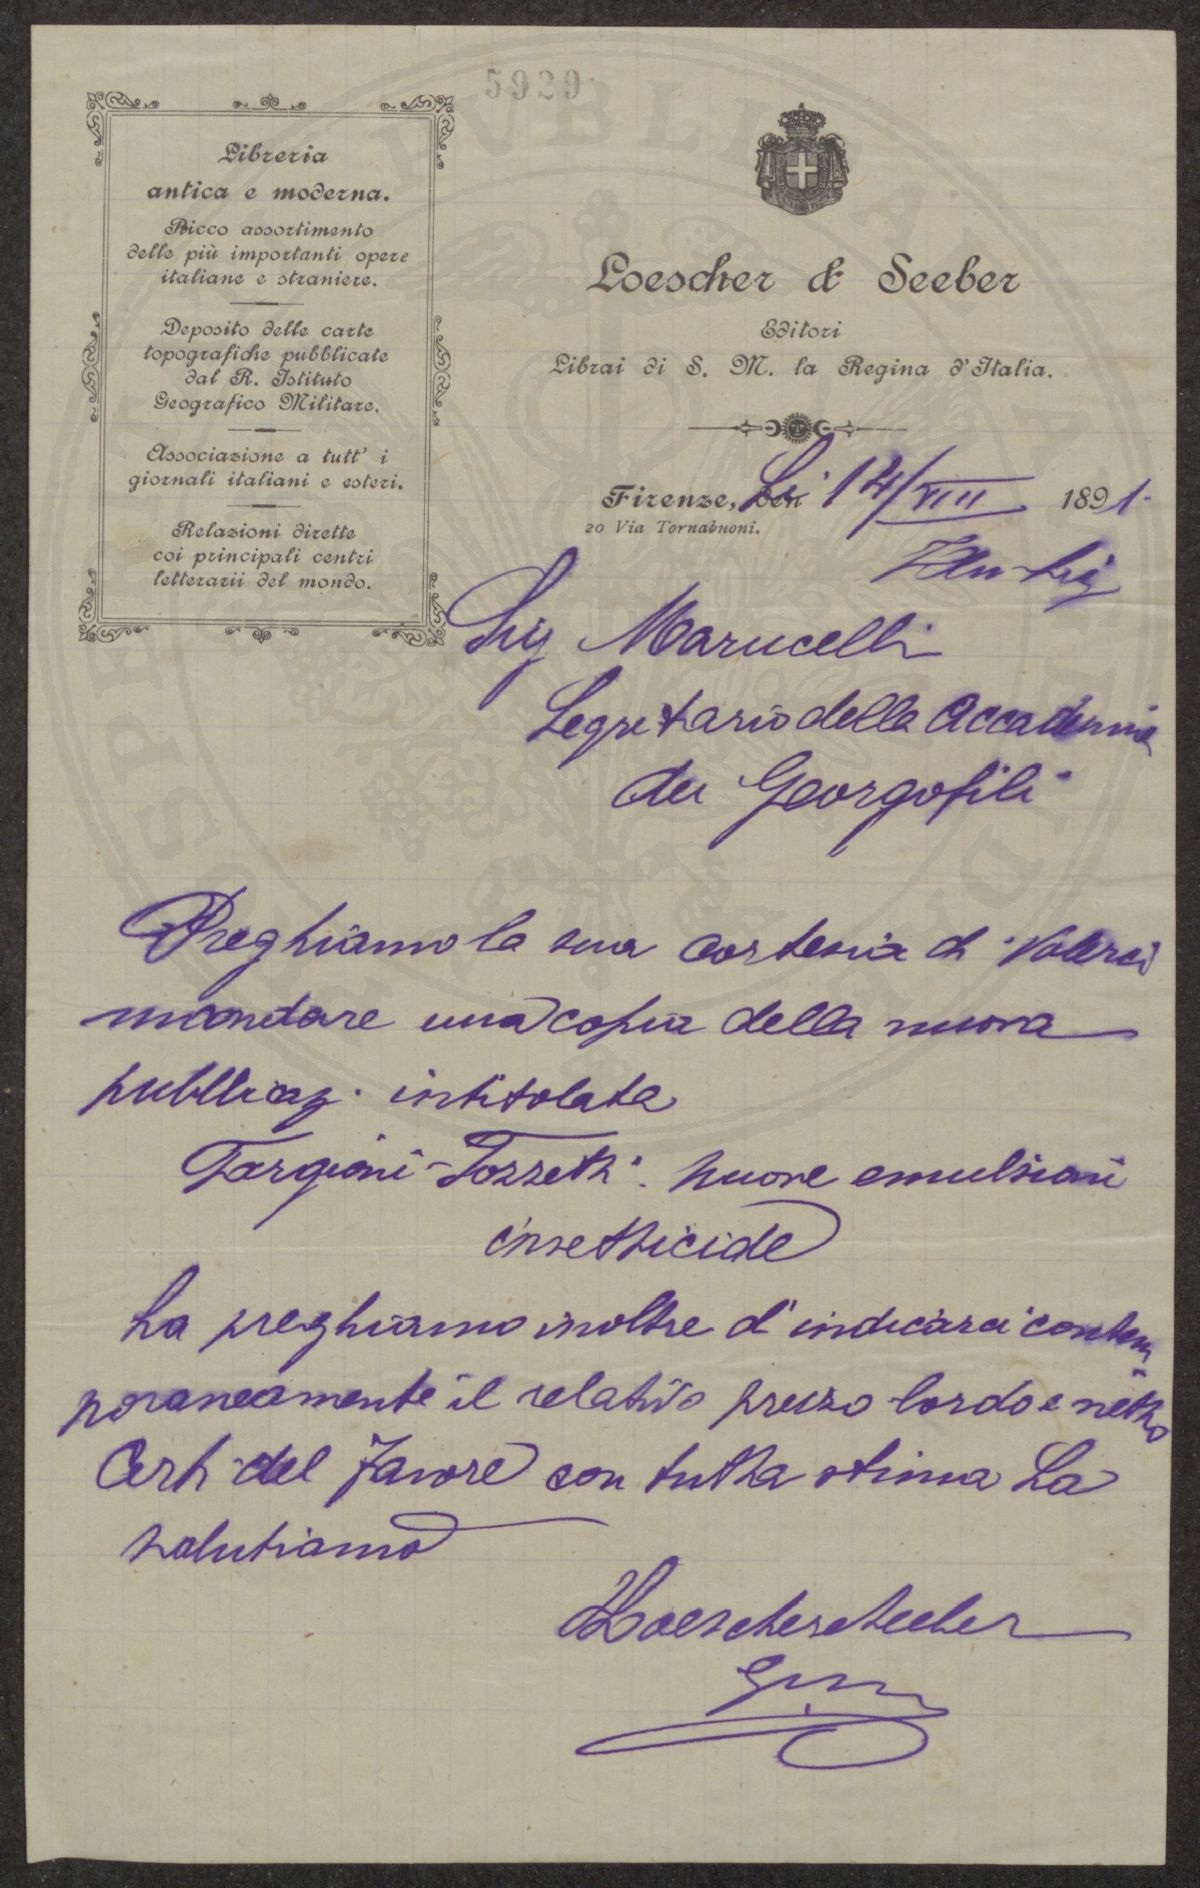 5929
Libreria
antica e moderna.
Ricco assortimento
delle più importanti opere
italiane e straniere.
Deposito delle carte
topografiche pubblicate
dal R. Istituto
Geografico Militare.
Associazione a tutt' i
giornali italiani e esteri.
Relazioni dirette
coi principali centri
letterarii del mondo.
Loescher & Seeber
Editori
Librai di S. M. la Regina d'Italia.
Firenze, Li 14/VIII 1891.
20 Via Tornabuoni.
Sig Marucelli
Segretario della Accademia
dei Georgofili
Preghiamo la sua cortesia di volerci
mandare una copia della nuova
pubblicaz. intitolata
Targioni-Tozzetti. Nuove emulsioni
insetticide
La preghiamo inoltre d'indicarci contem-
poraneamente il relativo prezzo lordo e netto
Certi del favore con tutta stima La
salutiamo
Loescher & Seeber